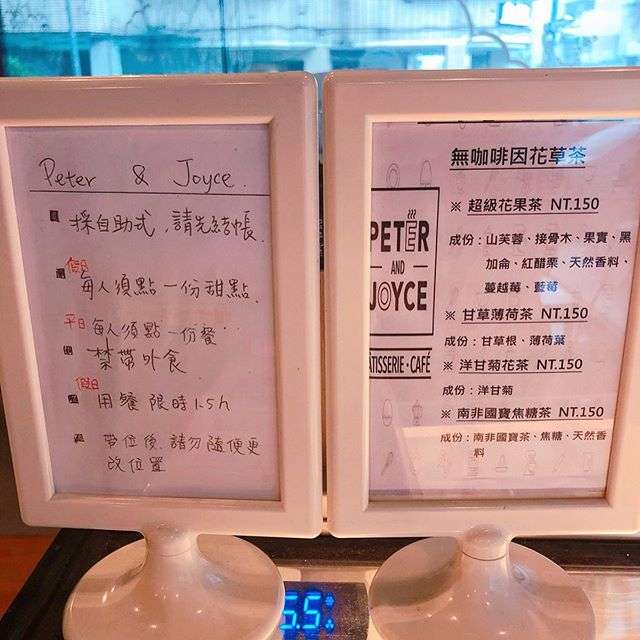 Peter & Joyce.
採自助式,請先結帳.
假日
每人須點一份甜點.
平日 每人須點一份餐
禁帶外食
假日
用餐限時1.5h
帶位後,請勿隨便更
改位置
PETER
AND
JOYCE
PÂTISSERIE·CAFÉ
無咖啡因花草茶
※ 超級花果茶 NT.150
成份:山芙蓉、接骨木、果實、黑
加侖、紅醋栗、天然香料、
蔓越莓、藍莓
※ 甘草薄荷茶 NT.150
成份:甘草根、薄荷葉
※ 洋甘菊花茶 NT.150
成份:洋甘菊
※ 南非國寶焦糖茶 NT.150
成份:南非國寶茶、焦糖、天然香
料
5.5